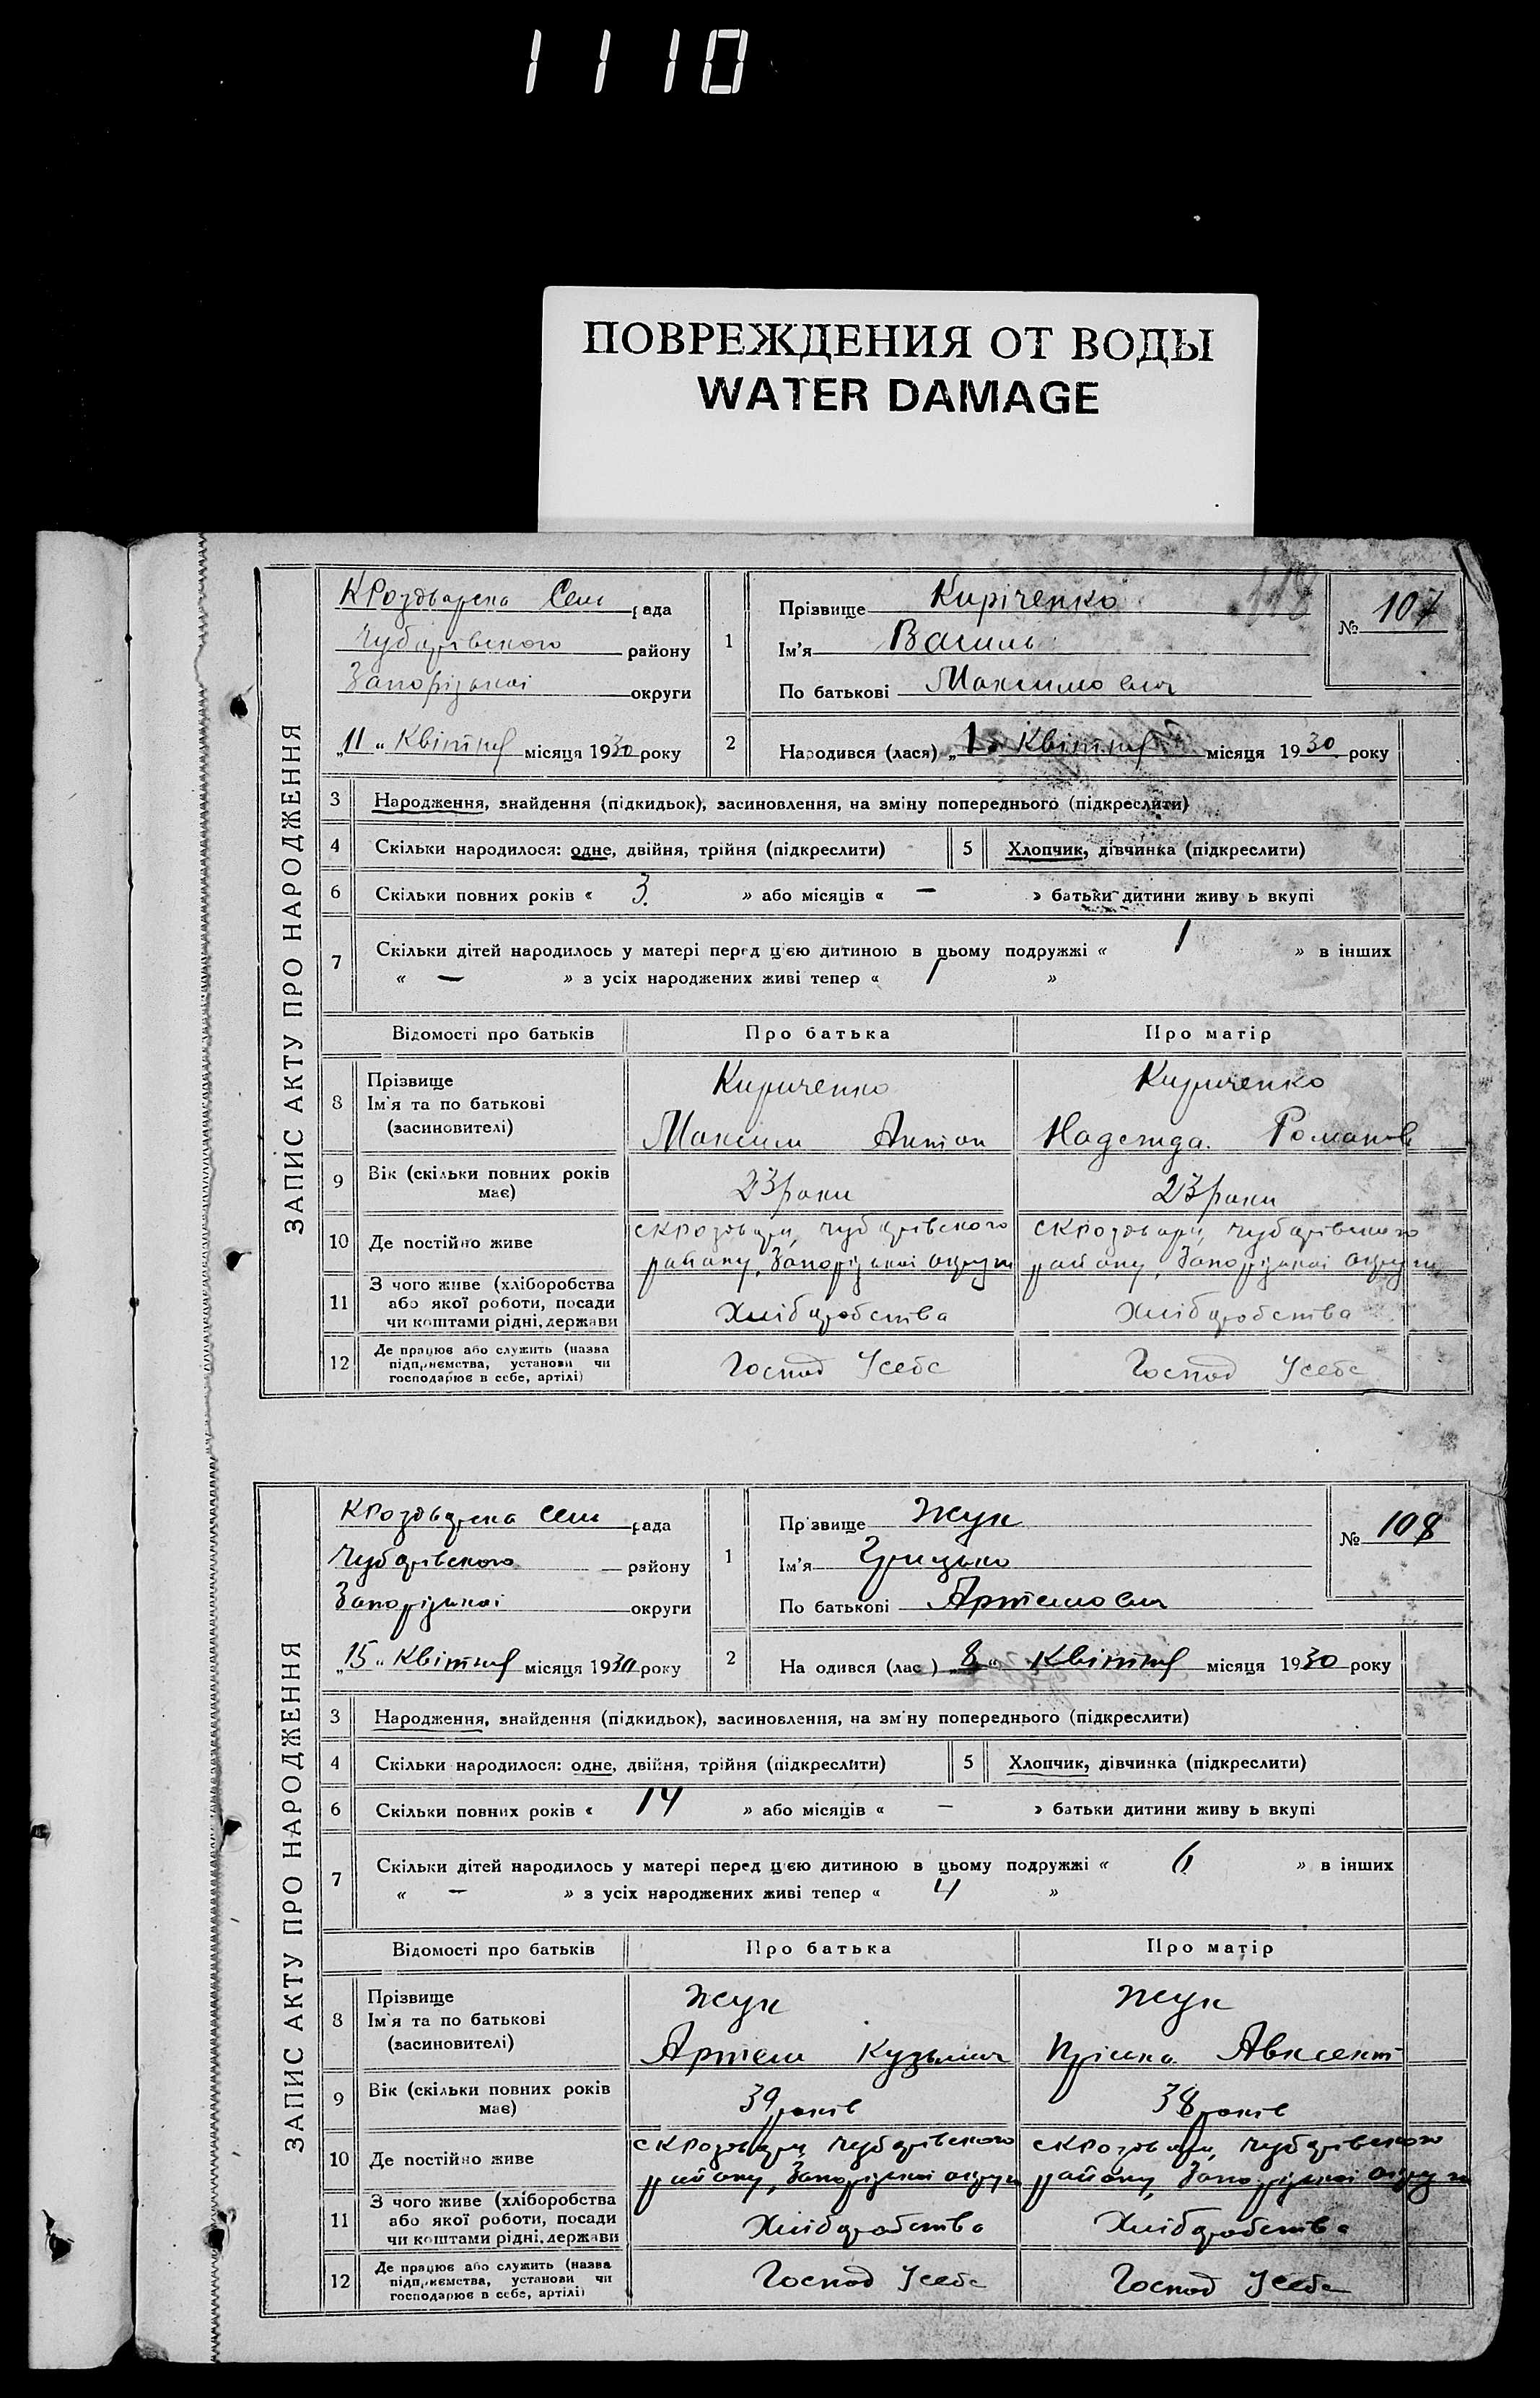 1110
ПОВРЕЖДЕНИЯ ОТ ВОДЫ
WATER DAMAGE
ЗАПИС АКТУ ПРО НАРОДЖЕННЯ
КРоздварска Сель рада
Чубарівського району
Запорізької округи
„11“ Квітня місяця 1930 року
118
№ 107
1 Прізвище Киріченко
Ім'я Василь
По батькові Максимович
2 Народився (лася) „1“ Квітня місяця 1930 року
3 Народження, знайдення (підкидьок), засиновлення, на зміну попереднього (підкреслити)
4 Скільки народилося: одне, двійня, трійня (підкреслити) 5 Хлопчик, дівчинка (підкреслити)
6 Скільки повних років « 3 » або місяців « — » батьки дитини живу ь вкупі
7 Скільки дітей народилось у матері перед цією дитиною в цьому подружжі « 1 » в інших
« — » з усіх народжених живі тепер « 1 »
Відомості про батьків Про батька Про матір
8 Прізвище Кириченко Кириченко
Ім'я та по батькові
(засиновителі) Максим Антон Надежда Романов
9 Вік (скільки повних років має) 23 роки 23 роки
10 Де постійно живе СКРоздвари, Чубарівського СКРоздвари, Чубарівського
району, Запорізької округи району, Запорізької округи
11 З чого живе (хліборобства
або якої роботи, посади Хлібаробства Хлібаробства
чи коштами рідні, держави
12 Де працює або служить (назва
підприємства, установи чи Господ Усебе Господ Усебе
господарює в себе, артілі)
ЗАПИС АКТУ ПРО НАРОДЖЕННЯ
КРоздварска Сель рада
Чубарівського району
Запорізької округи
„15“ Квітня місяця 1930 року
№ 108
1 Пр звище Жук
Ім'я Грицько
По батькові Артемович
2 На одився (лас ) „8“ Квітня місяця 1930 року
3 Народження, знайдення (підкидьок), засиновлення, на зміну попереднього (підкреслити)
4 Скільки народилося: одне, двійня, трійня (підкреслити) 5 Хлопчик, дівчинка (підкреслити)
6 Скільки повних років « 14 » або місяців « — » батьки дитини живу ь вкупі
7 Скільки дітей народилось у матері перед цією дитиною в цьому подружжі « 6 » в інших
« — » з усіх народжених живі тепер « 4 »
Відомості про батьків Про батька Про матір
8 Прізвище Жук Жук
Ім'я та по батькові
(засиновителі) Артем Кузьмич Пріська Авксент
9 Вік (скільки повних років має) 39 років 38 років
10 Де постійно живе СКРоздвари, Чубарівського СКРоздвари, Чубарівського
району, Запорізької округи району, Запорізької округи
11 З чого живе (хліборобства
або якої роботи, посади Хлібаробства Хлібаробства
чи коштами рідні, держави
12 Де працює або служить (назва
підприємства, установи чи Господ Усебе Господ Усебе
господарює в себе, артілі)